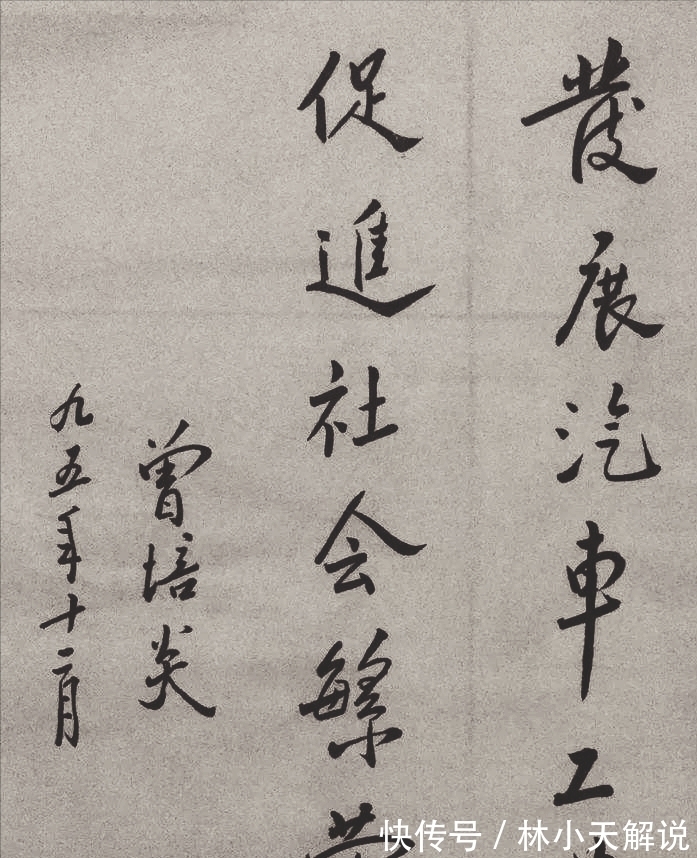 發展汽車工
促進社会繁
曾培炎
九五年十二月
快传号 / 林小天解说